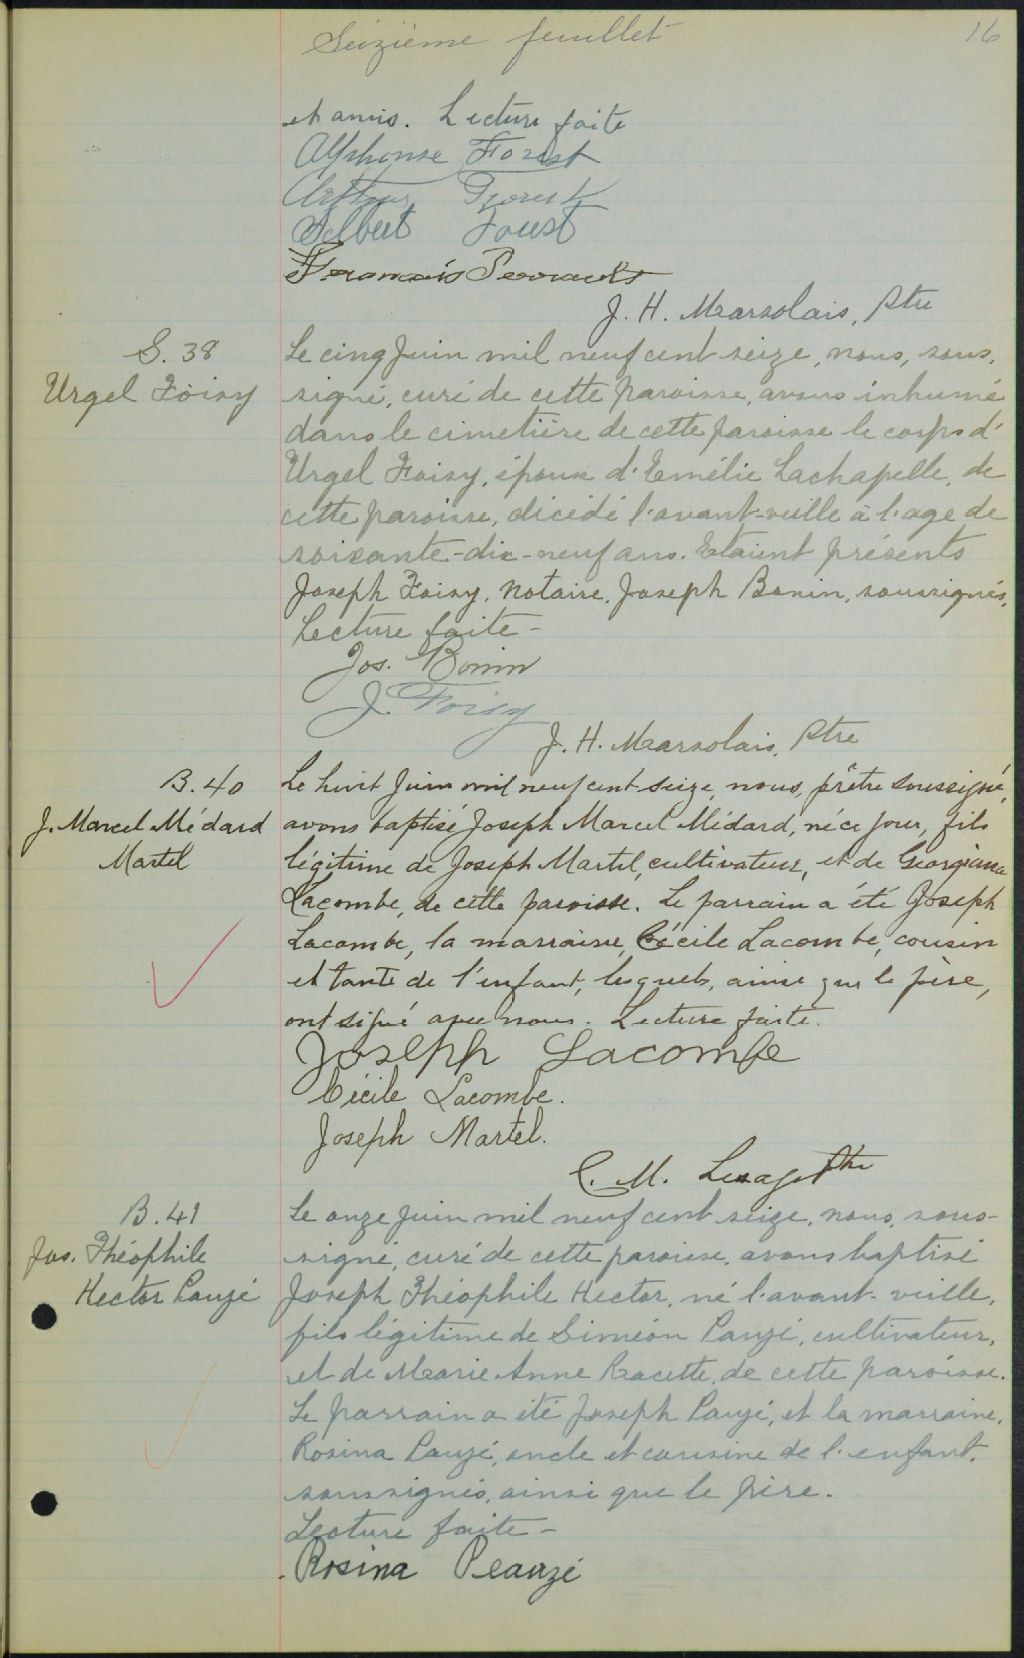 Seizième feuillet
16
et amis. Lecture faite
Alphonse Forest
Arthur Forest
Albert Forest
François Perreault
J. H. Marsolais, Ptre
S. 38
Urgel Foisy
Le cinq Juin mil neuf cent seize, nous, sous-
signé, curé de cette paroisse, avons inhumé
dans le cimetière de cette paroisse le corps d'
Urgel Foisy, époux d'Emélie Lachapelle, de
cette paroisse, décédé l'avant-veille à l'age de
soixante-dix-neuf ans. Etaient présents
Joseph Foisy, notaire, Joseph Bonin, soussignés.
Lecture faite -
Jos. Bonin
J. Foisy
J. H. Marsolais, Ptre
B. 40
J. Marcel Médard
Martel
Le huit Juin mil neuf cent seize, nous, prêtre soussigné,
avons baptisé Joseph Marcel Médard, né ce jour, fils
légitime de Joseph Martel, cultivateur, et de Georgiana
Lacombe, de cette paroisse. Le parrain a été Joseph
Lacombe, la marraine, Cécile Lacombe, cousin
et tante de l'enfant, lesquels, ainsi que le père,
ont signé avec nous. Lecture faite.
Joseph Lacombe
Cécile Lacombe.
Joseph Martel.
C. M. Lesage Ptre
B. 41
Jos. Théophile
Hector Pauzé
Le onze Juin mil neuf cent seize, nous, sous-
signé, curé de cette paroisse, avons baptisé
Joseph Théophile Hector, né l'avant-veille,
fils légitime de Siméon Pauzé, cultivateur,
et de Marie-Anne Racette, de cette paroisse.
Le parrain a été Joseph Pauzé, et la marraine,
Rosina Pauzé, oncle et cousine de l'enfant,
soussignés, ainsi que le père.
Lecture faite -
Rosina Peauzé